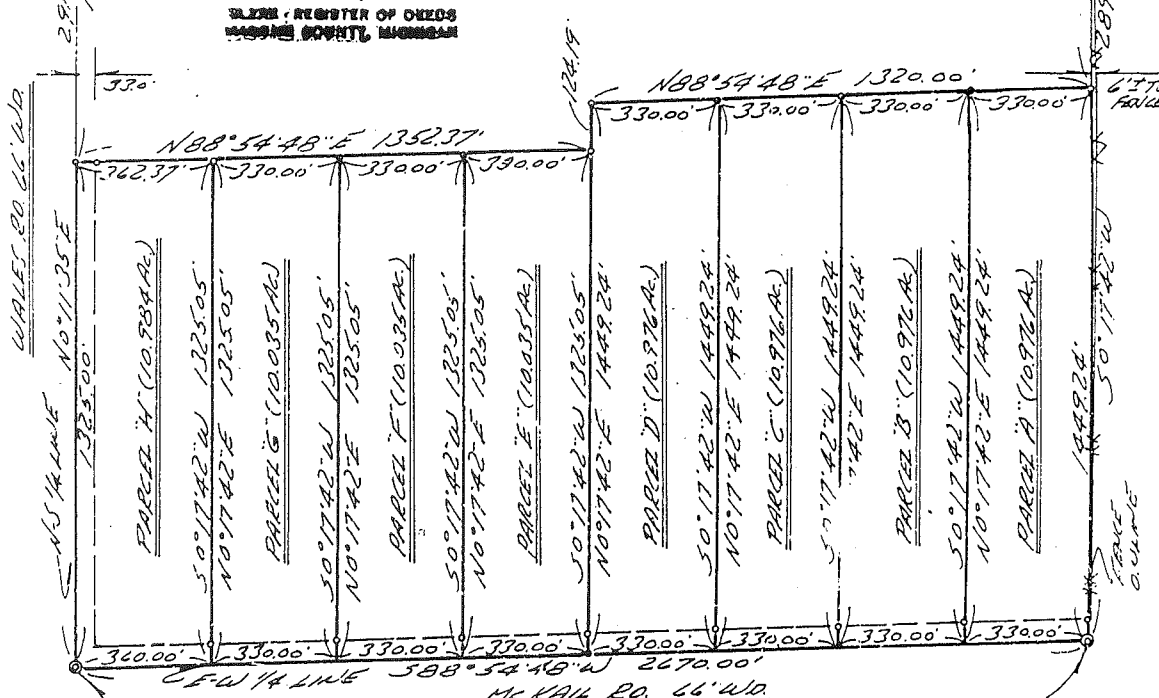 REGISTER OF DEEDS
COUNTY, MICHIGAN
33.0'
WALES RD. 66' WD.
N88°54'48"E 1352.37'
362.37'
330.00'
330.00'
330.00'
124.19'
N88°54'48"E 1320.00'
330.00'
330.00'
330.00'
330.00'
6'± TO
FENCE
N0°11'35"E
1325.00'
N-S 1/4 LINE
PARCEL "H" (10.984 Ac.)
S0°17'42"W 1325.05'
N0°17'42"E 1325.05'
PARCEL "G" (10.035 Ac.)
S0°17'42"W 1325.05'
N0°17'42"E 1325.05'
PARCEL "F" (10.035 Ac.)
S0°17'42"W 1325.05'
N0°17'42"E 1325.05'
PARCEL "E" (10.035 Ac.)
S0°17'42"W 1325.05'
N0°17'42"E 1449.24'
PARCEL "D" (10.976 Ac.)
S0°17'42"W 1449.24'
N0°17'42"E 1449.24'
PARCEL "C" (10.976 Ac.)
S0°17'42"W 1449.24'
'42"E 1449.24'
PARCEL "B" (10.976 Ac.)
S0°17'42"W 1449.24'
N0°17'42"E 1449.24'
PARCEL "A" (10.976 Ac.)
1449.24'
S0°17'42"W
FENCE
O.V. LINE
360.00'
330.00'
330.00'
330.00'
330.00'
330.00'
330.00'
330.00'
E-W 1/4 LINE S88°54'48"W 2670.00'
McKAIL RD. 66' WD.